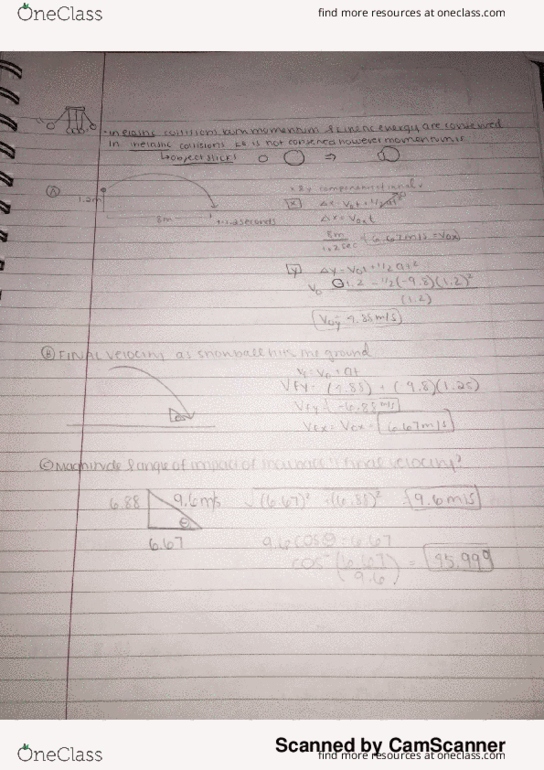 OneClass
find more resources at oneclass.com
in elastic collisions both momentum & kinetic energy are conserved
in inelastic collisions KE is not conserved however momentum is
↳ object sticks ⇒
A
1.2m
8m
t=1.2 seconds
x & y components
[x]
Δx = Vox t
8m
1.2 sec
6.67m/s = Vox
[y] Δy = Vot + 1/2 at²
-1.2 - 1/2(-9.8)(1.2)²
(1.2)
Voy = 4.88m/s
B FINAL velocity as snowball hits the ground
Vf = Vo + at
Vfy = (4.88) + (-9.8)(1.2s)
Vfy = -6.88 m/s
Vfx = Vox = 6.67m/s
C Magnitude & angle of impact of final velocity?
6.88
9.6m/s
θ
6.67
√(6.67)² + (6.88)² = 9.6m/s
9.6cosθ = 6.67
cos⁻¹(6.67)
(9.6)
=
OneClass
Scanned by CamScanner
find more resources at oneclass.com